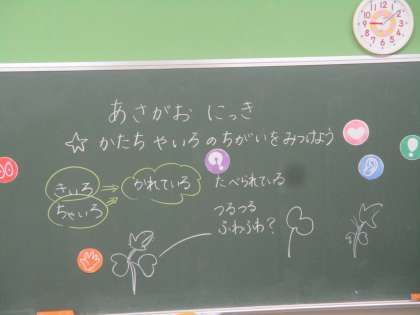 あさがお にっき
☆ かたちやいろのちがいをみつけよう
きいろ ⇒ かれている たべられている
ちゃいろ ⇒
つるつる
ふわふわ?